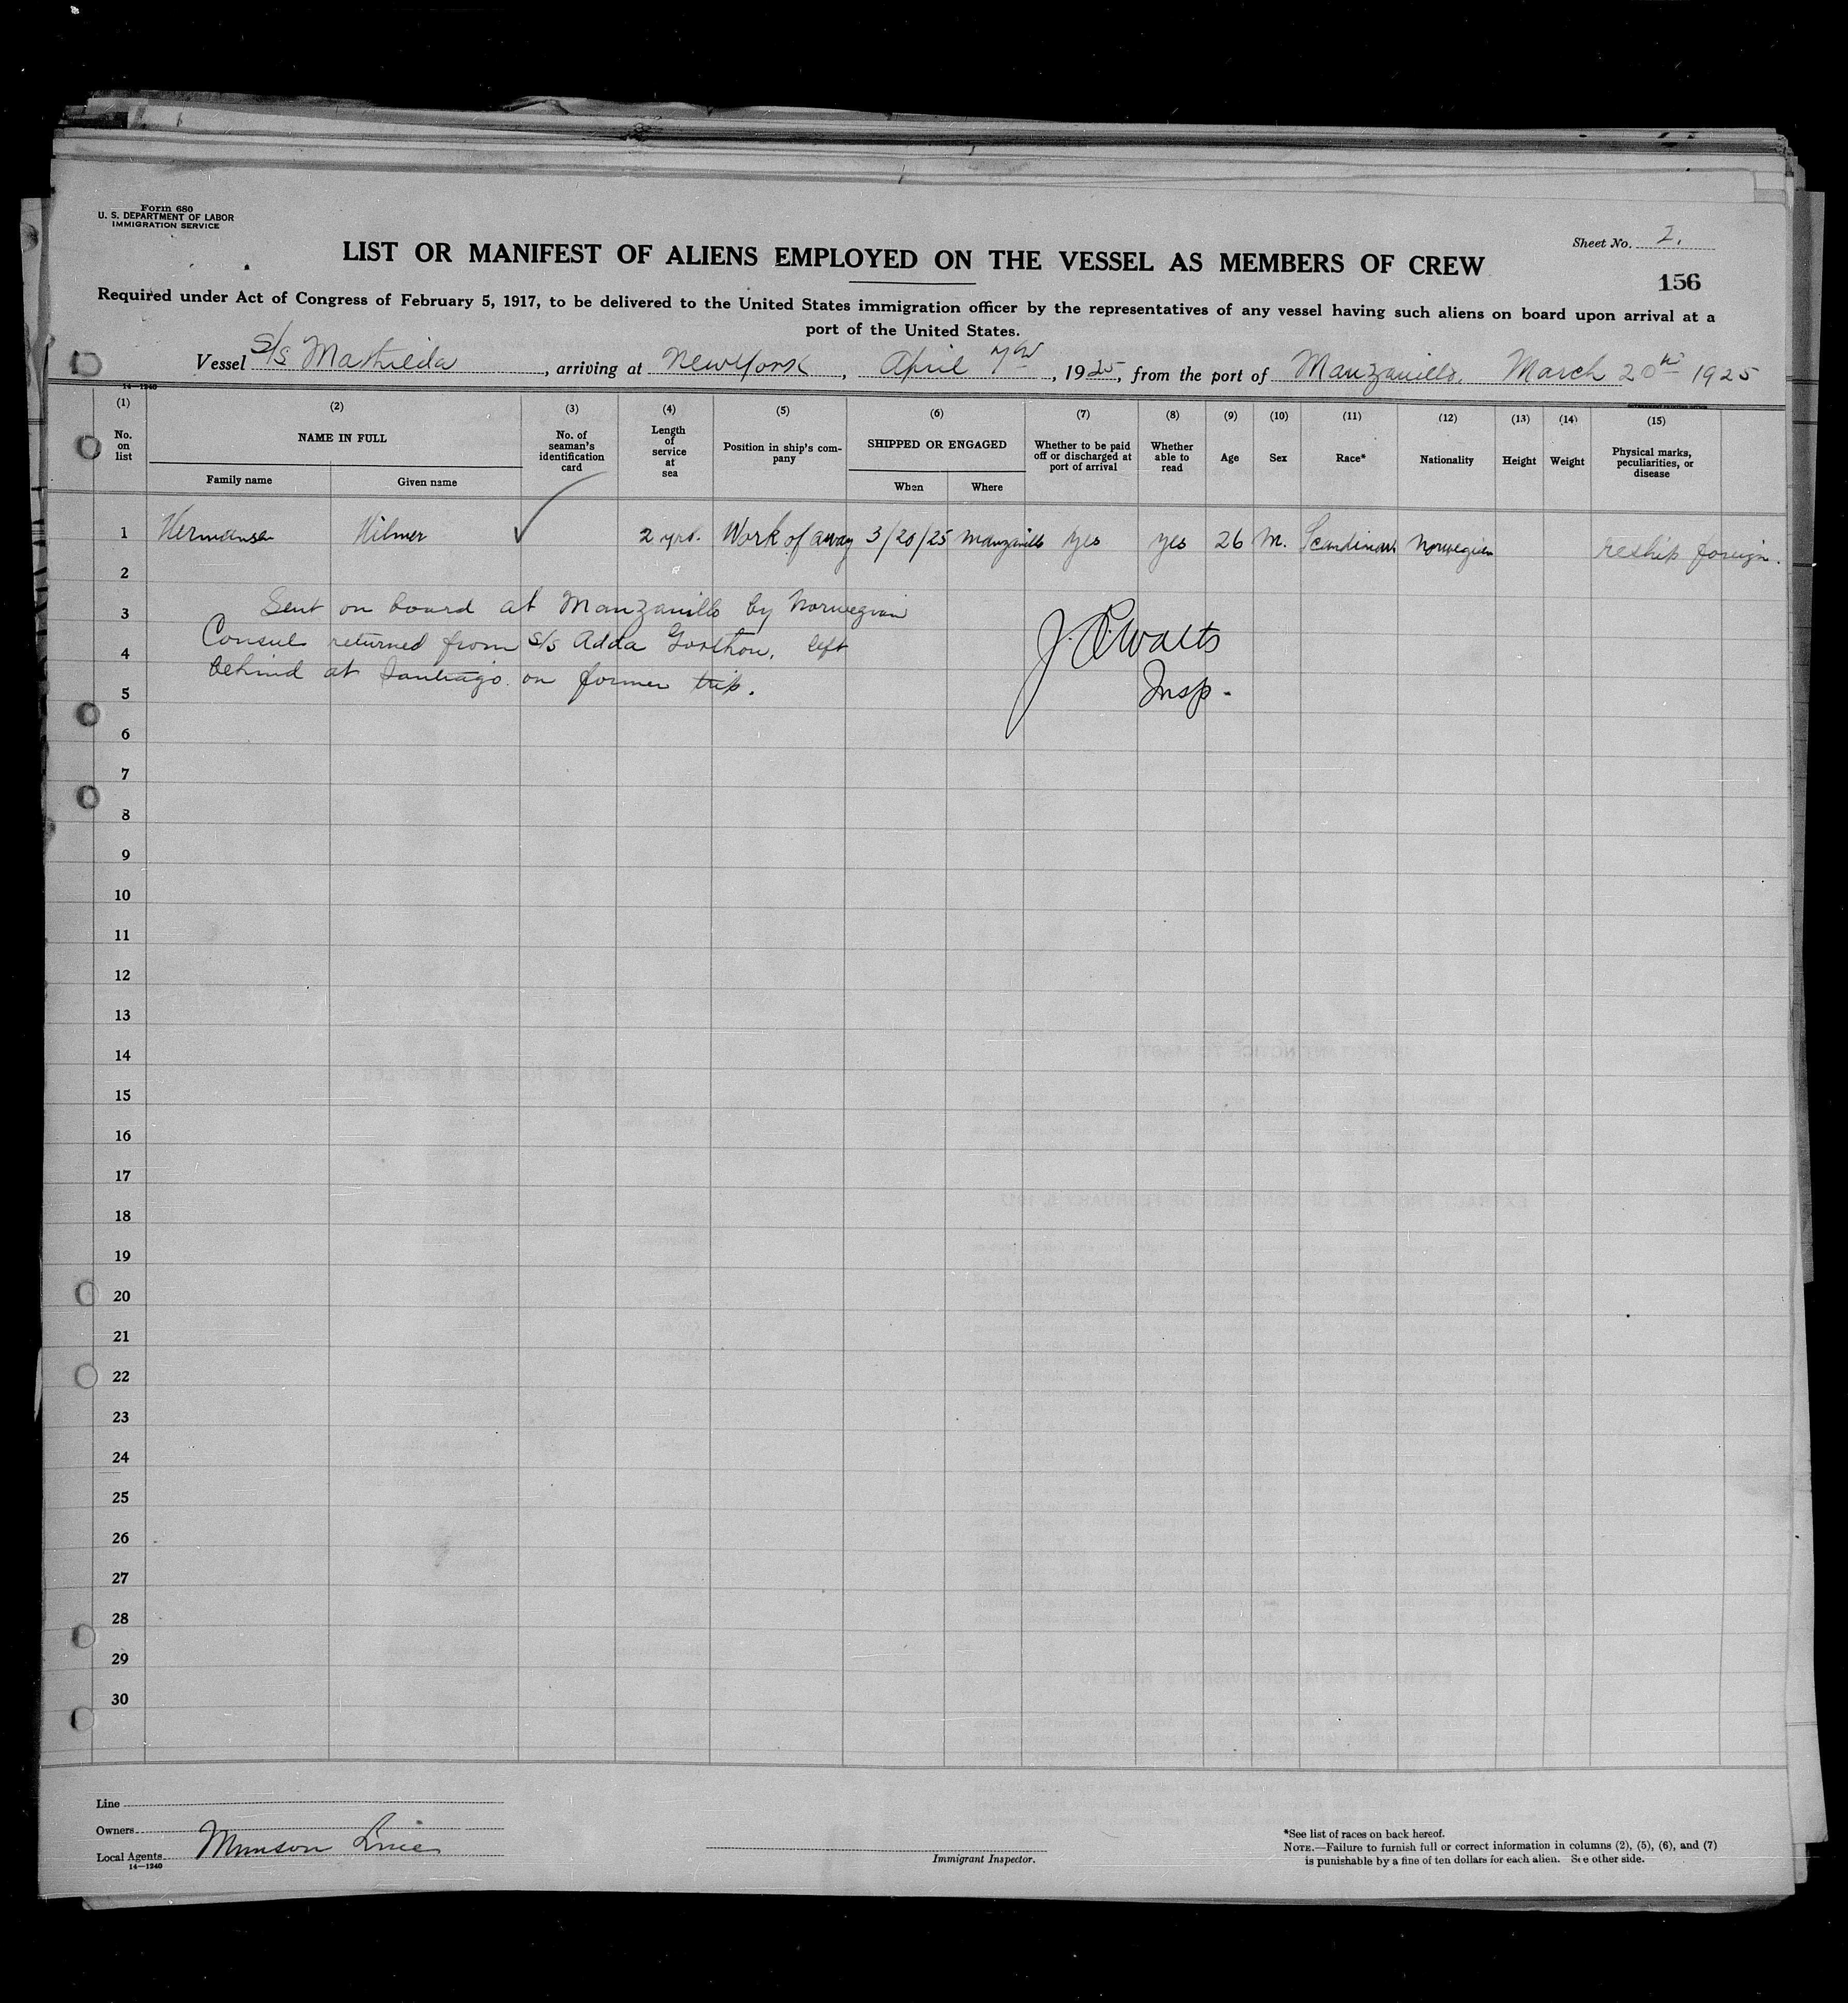 Form 680
U. S. DEPARTMENT OF LABOR
IMMIGRATION SERVICE
Sheet No. 2.
LIST OR MANIFEST OF ALIENS EMPLOYED ON THE VESSEL AS MEMBERS OF CREW
156
Required under Act of Congress of February 5, 1917, to be delivered to the United States immigration officer by the representatives of any vessel having such aliens on board upon arrival at a
port of the United States.
Vessel S/S Mathilda, arriving at New York, April 7th, 1925, from the port of Manzanillo. March 20th 1925
14—1240
(1) (2) (3) (4) (5) (6) (7) (8) (9) (10) (11) (12) (13) (14) (15)
No. on list NAME IN FULL No. of seaman's identification card Length of service at sea Position in ship's company SHIPPED OR ENGAGED Whether to be paid off or discharged at port of arrival Whether able to read Age Sex Race* Nationality Height Weight Physical marks, peculiarities, or disease
Family name Given name When Where
1 Hermansen Hilmer 2 yrs. Work of away 3/20/25 Manzanillo yes yes 26 M. Norwegian reship foreign.
2
Sent on board at Manzanillo by Norwegian
3
Consul returned from S/S Adda Gorthon, left
4
behind at Santiago on former trip.
5
J. Walts
Insp.
6
7
8
9
10
11
12
13
14
15
16
17
18
19
20
21
22
23
24
25
26
27
28
29
30
Line
Owners
Local Agents Munson Line
14—1240
Immigrant Inspector.
*See list of races on back hereof.
NOTE.—Failure to furnish full or correct information in columns (2), (5), (6), and (7)
is punishable by a fine of ten dollars for each alien. See other side.